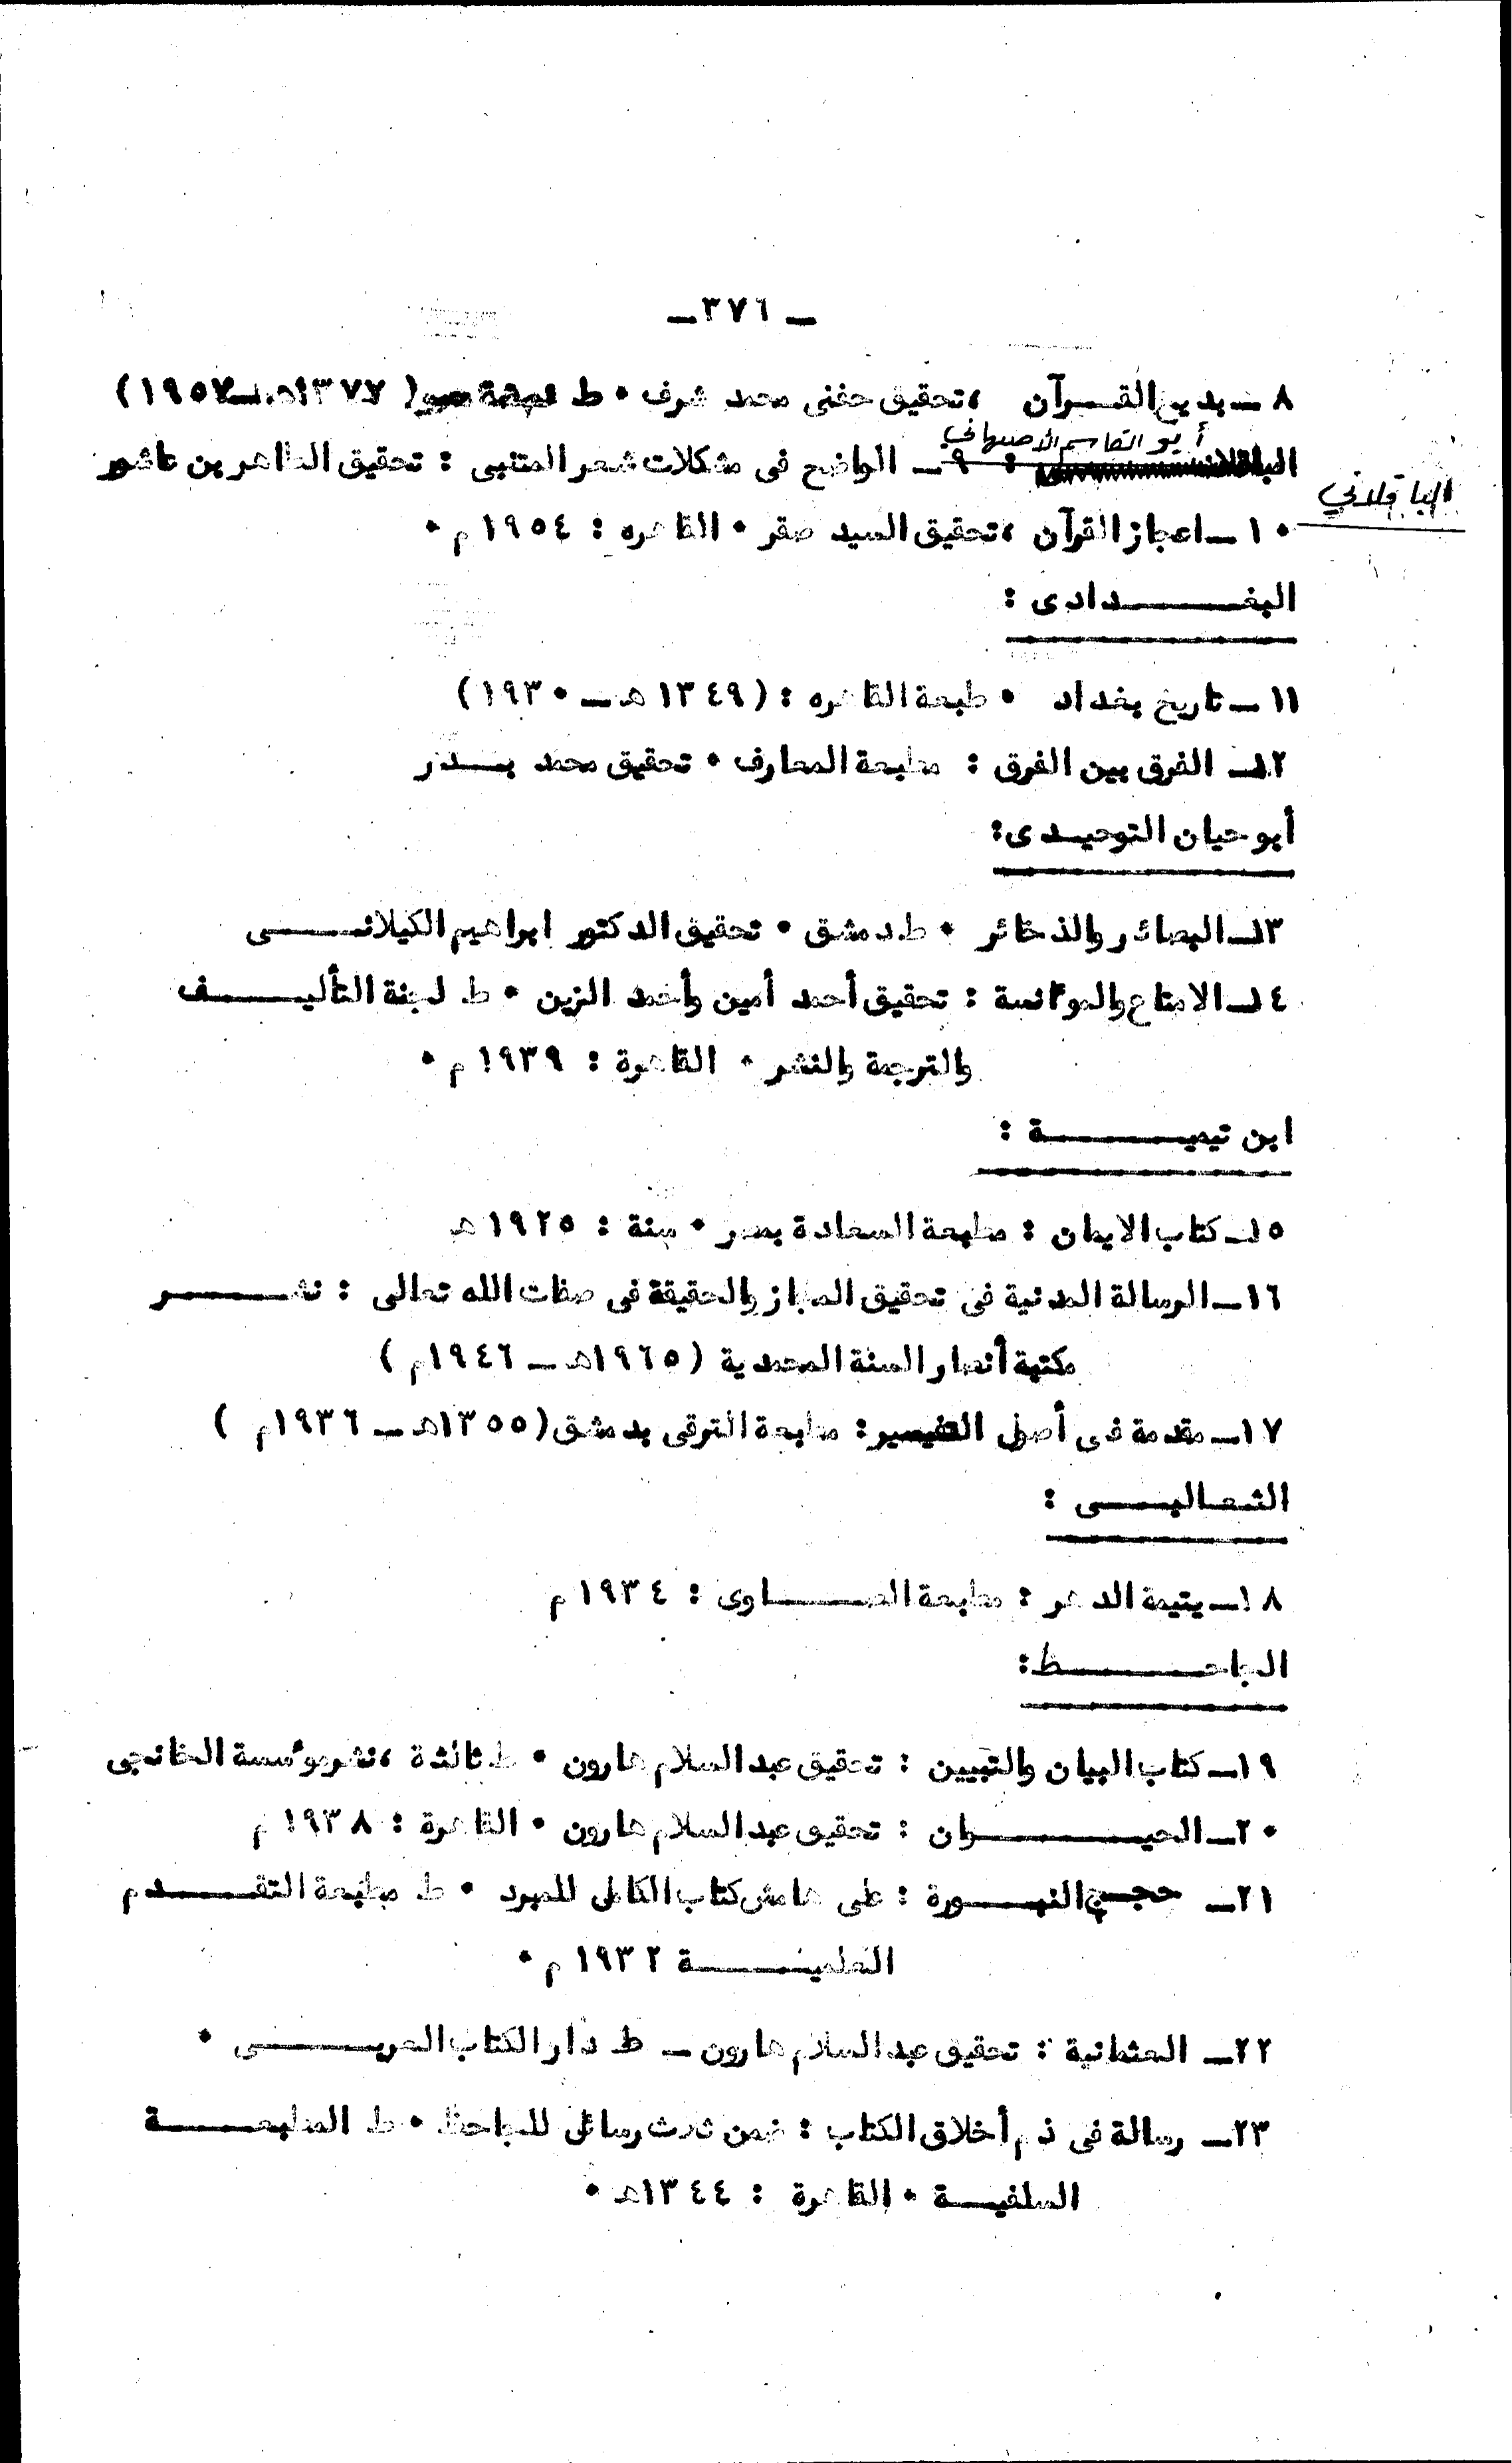 ـ ٣٧٦ ـ
٨ ـ بديع القـرآن ، تحقيق حفنى محمد شرف • ط نهضة مصر ( ١٣٧٧هـ ـ ١٩٥٧ )
أبو القاسم الأصبهاني
الباقلانى : ٩ ـ الواضح فى مشكلات شعر المتنبى : تحقيق الطاهر بن عاشور
الباقلاني
١٠ ـ اعجاز القرآن ، تحقيق السيد صقر • القاهره : ١٩٥٤ م •
البغـــدادى :
١١ ـ تاريخ بغداد • طبعة القاهره : ( ١٣٤٩ هـ ـ ١٩٣٠ )
١٢ ـ الفرق بين الفرق : مطبعة المعارف • تحقيق محمد بــدر
أبو حيان التوحيـدى :
١٣ ـ البصائر والذخائر • ط دمشق • تحقيق الدكتور ابراهيم الكيلانـــى
١٤ ـ الامتاع والموانسة : تحقيق أحمد أمين وأحمد الزين • ط لجنة التأليـــف
والترجمة والنشر • القاهرة : ١٩٣٩ م •
ابن تيميــــة :
١٥ ـ كتاب الايمان : مطبعة السعادة بمصر • سنة : ١٩٢٥ هـ
١٦ ـ الرسالة المدنية فى تحقيق المجاز والحقيقة فى صفات الله تعالى : نشـــر
مكتبة أنصار السنة المحمدية ( ١٩٦٥هـ ـ ١٩٤٦م )
١٧ ـ مقدمة فى أصول التفسير : مطبعة الترقى بدمشق ( ١٣٥٥هـ ـ ١٩٣٦م )
الثعالبــى :
١٨ ـ يتيمة الدهر : مطبعة الصـــاوى : ١٩٣٤ م
الجاحـــظ :
١٩ ـ كتاب البيان والتبيين : تحقيق عبد السلام هارون • ط ثالثة ، نشر موسسة الخانجى
٢٠ ـ الحيـــــوان : تحقيق عبد السلام هارون • القاهرة : ١٩٣٨ م
٢١ ـ حجـج النبــورة : على هامش كتاب الكامل للمبرد • ط مطبعة التقــدم
العلميــــة ١٩٣٢ م •
٢٢ ـ العثمانية : تحقيق عبد السلام هارون ـ ط دار الكتاب العربــــى •
٢٣ ـ رسالة فى ذم أخلاق الكتاب : ضمن ثلاث رسائل للجاحظ • ط المطبعـــة
السلفيــة • القاهرة : ١٣٤٤هـ •